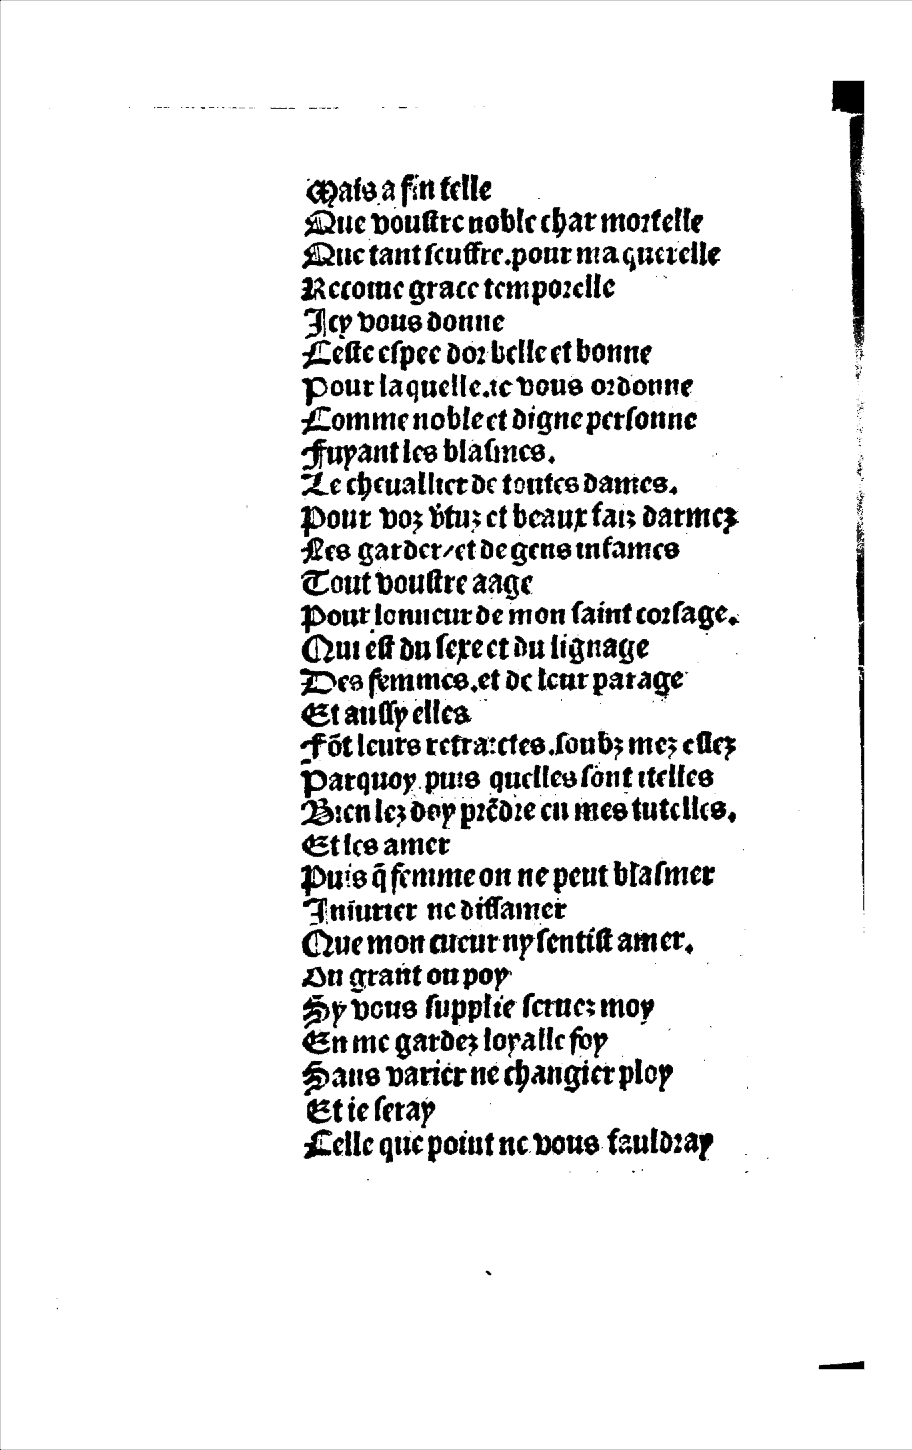 Mais a fin telle
Que voustre noble char mortelle
Que tant seuffre.pour ma querelle
Recome grace temporelle
Icy vous donne
Ceste espee dor belle et bonne
Pour laquelle.ie vous ordonne
Comme noble et digne personne
Fuyant les blasmes.
Le cheuallier de toutes dames.
Pour voz v̄tuz et beaux faiz darmez
Les garder/et de gens infames
Tout voustre aage
Pour lonneur de mon saint corsage.
Qui est du sexe et du lignage
Des femmes.et de leur parage
Et aussy elles
Fōt leurs retraictes.soubz mez esllez
Parquoy puis quelles sont itelles
Bien lez doy prēdre en mes tutelles.
Et les amer
Puis q̄ femme on ne peut blasmer
Iniurier ne diffamer
Que mon cueur ny sentist amer.
Ou grant ou poy
Sy vous supplie seruez moy
En me gardez loyalle foy
Sans varier ne changier ploy
Et ie seray
Celle que point ne vous fauldray